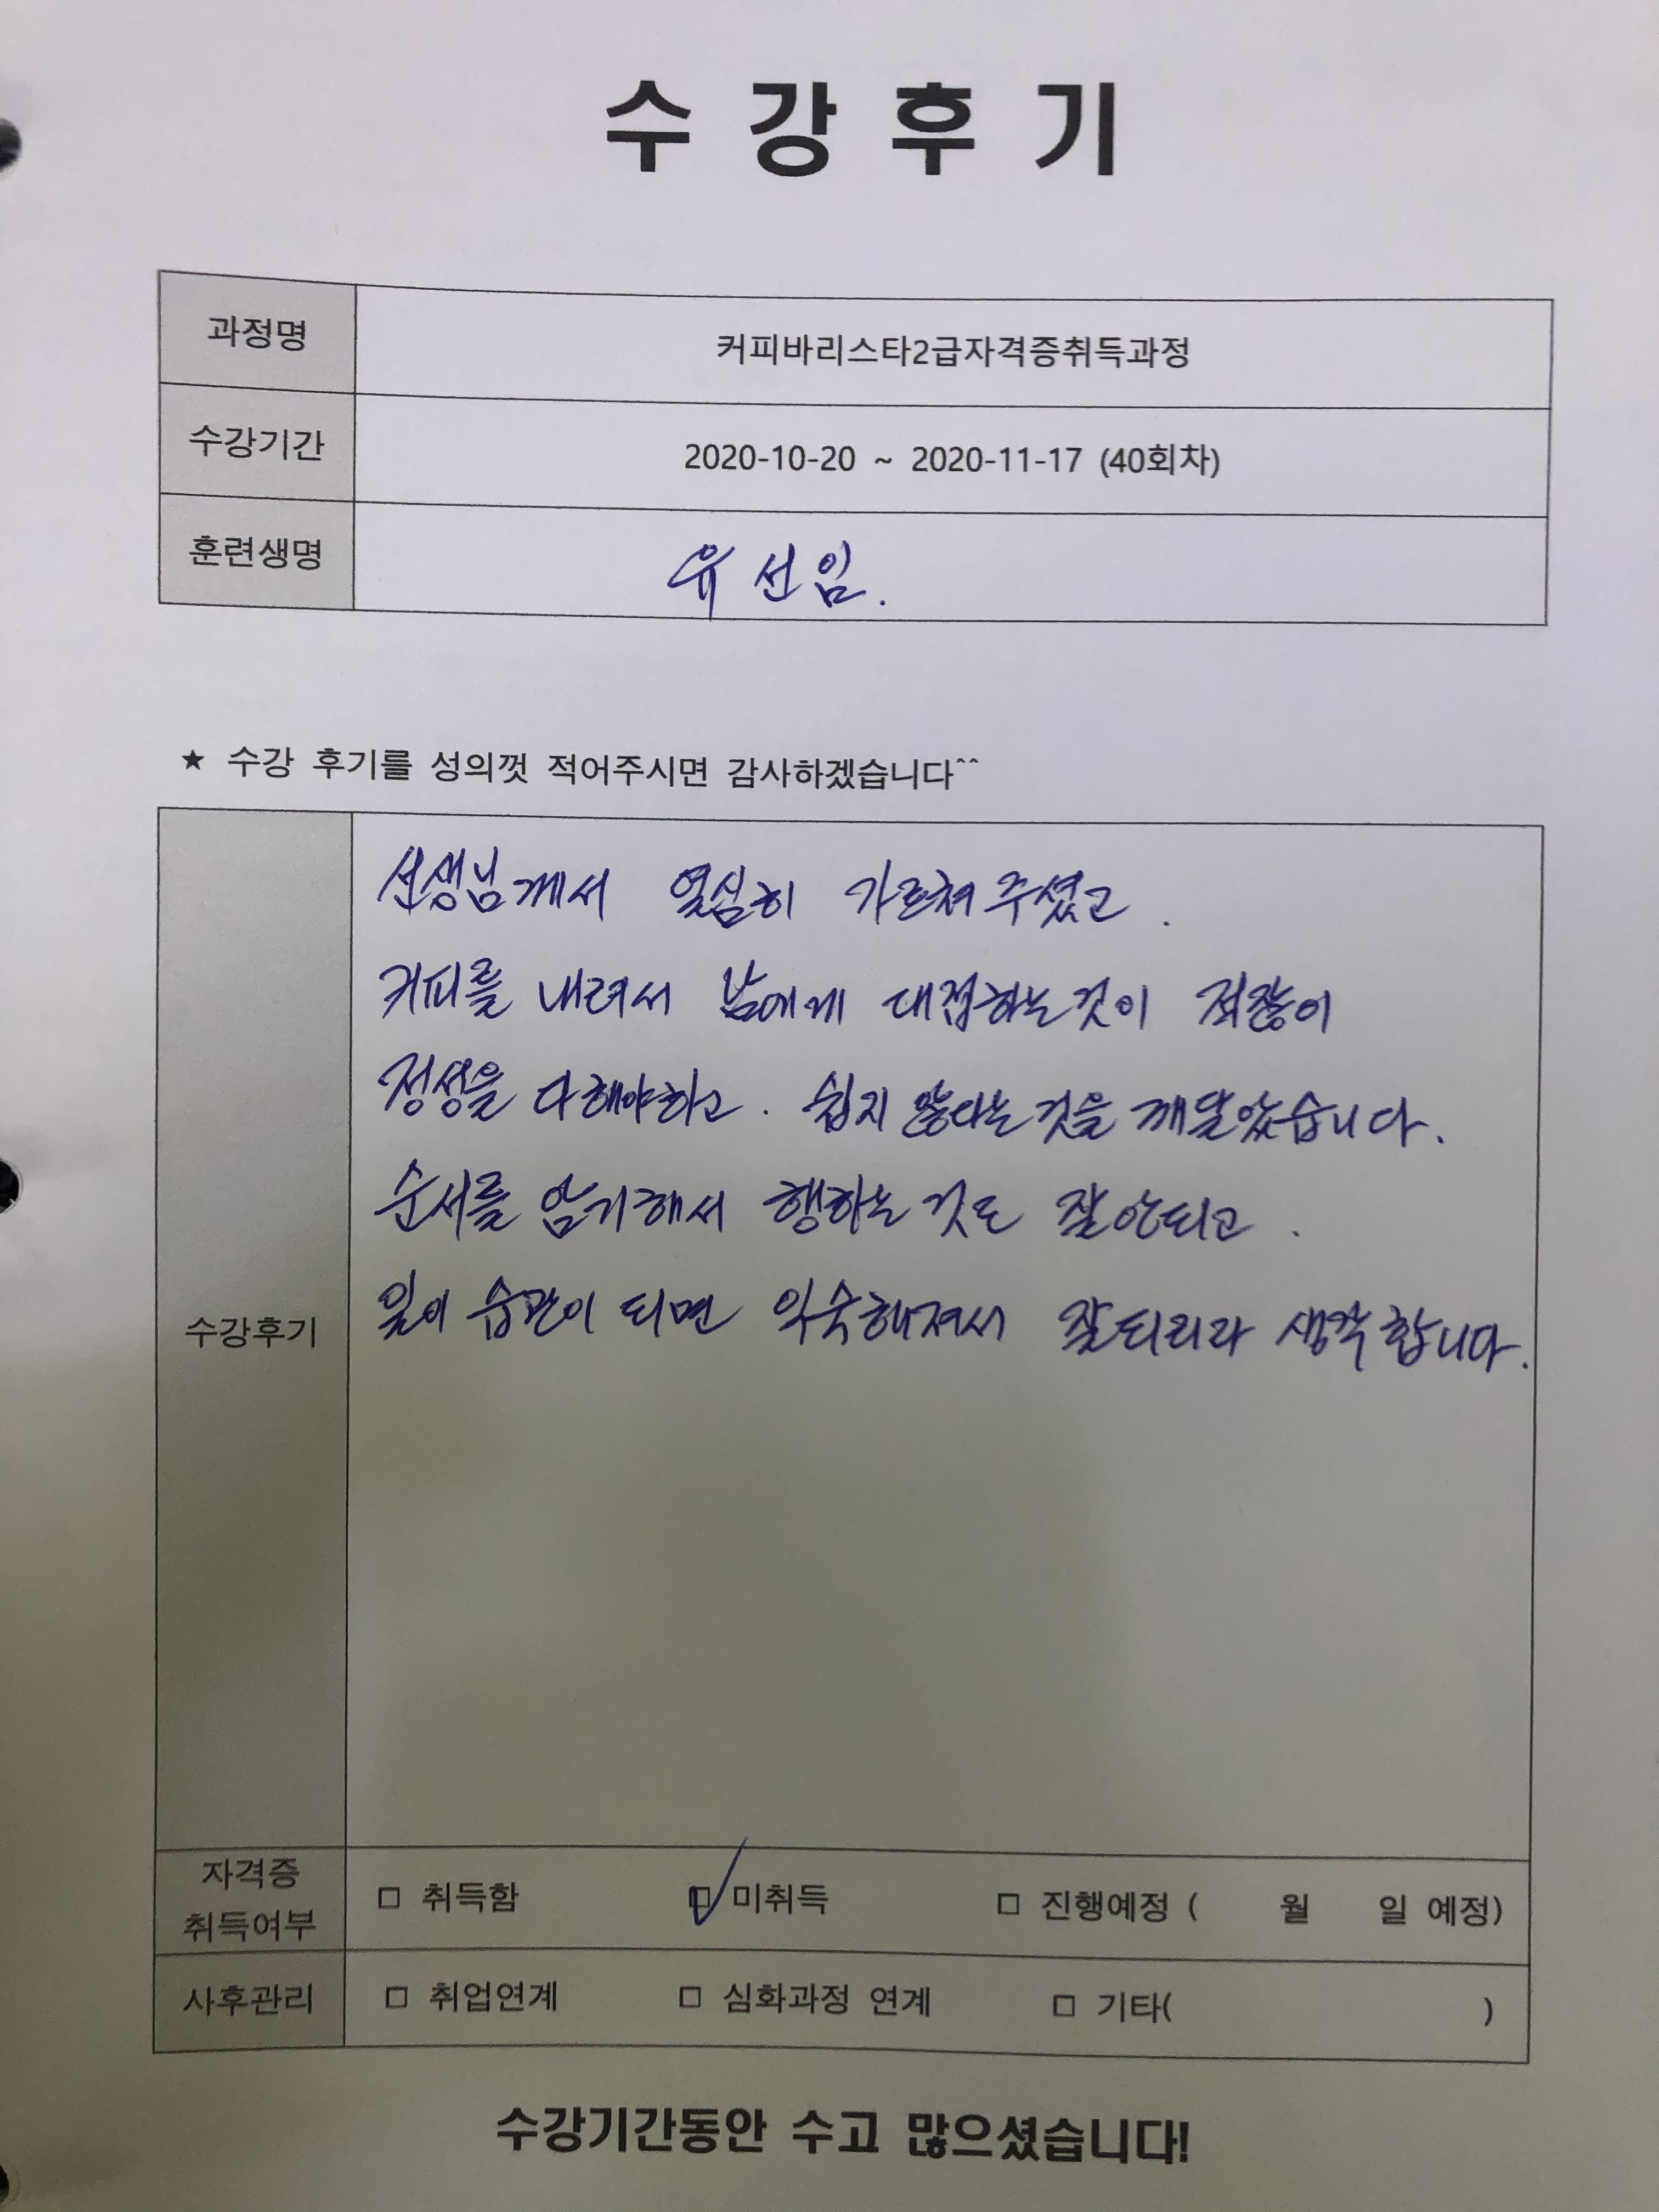 수강후기
과정명 커피바리스타2급자격증취득과정
수강기간 2020-10-20 ~ 2020-11-17 (40회차)
훈련생명 유선임.
★ 수강 후기를 성의껏 적어주시면 감사하겠습니다^^
선생님께서 열심히 가르쳐 주셨고.
커피를 내려서 남에게 대접하는것이 적잖이
정성을 다해야하고. 쉽지 않다는것을 깨달았습니다.
순서를 암기해서 행하는 것도 잘안되고.
수강후기 일이 습관이 되면 익숙해져서 잘되리라 생각합니다.
자격증
취득여부 □ 취득함 □ 미취득 □ 진행예정 ( 월 일 예정)
사후관리 □ 취업연계 □ 심화과정 연계 □ 기타( )
수강기간동안 수고 많으셨습니다!